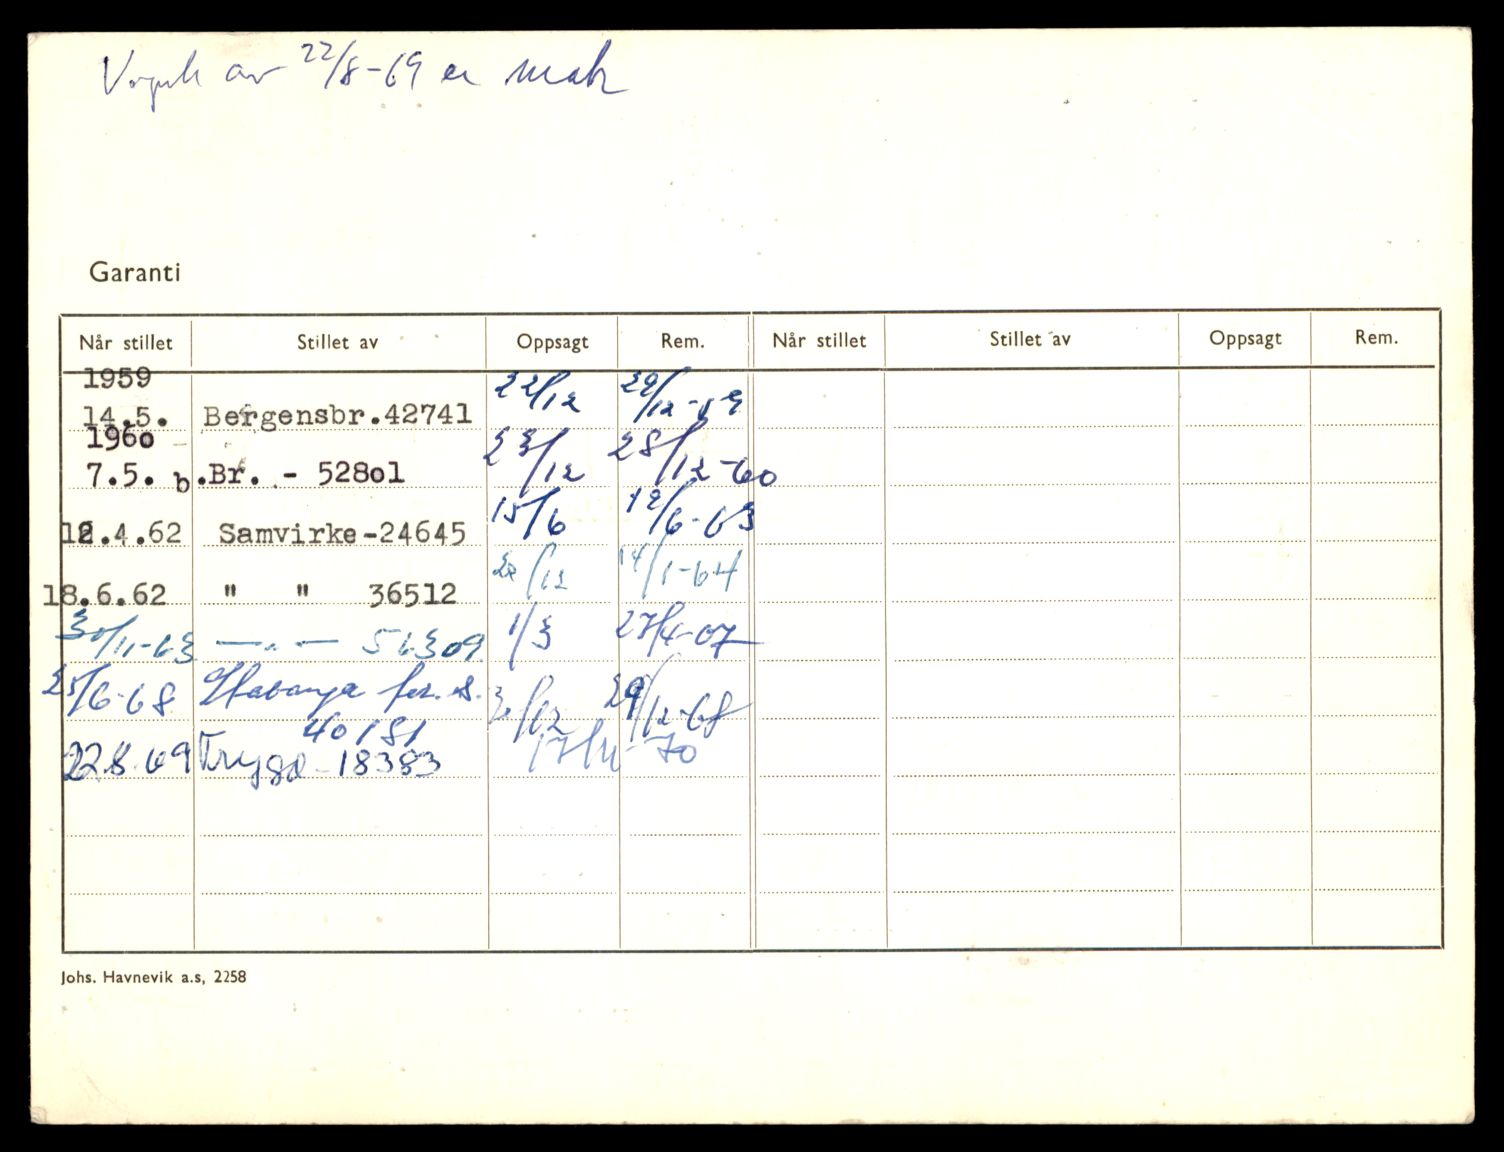 av 22/8-69 er mak
Garanti
Når stillet Stillet av Oppsagt Rem. Når stillet Stillet av Oppsagt Rem.
1959
14.5. Bergensbr.42741 22/12 29/12-59
1960
7.5. b.Br. - 52801 23/12 28/12-60
12.4.62 Samvirke-24645 15/6 19/6-63
18.6.62 " " 36512 /12 14/1-64
30/11-63 —"— 56309 1/3 27/4-67
25/6-68 for. s. /12 29/12-68
40181
22.8.69 Trygd-18383 17/11-70
Johs. Havnevik a.s, 2258